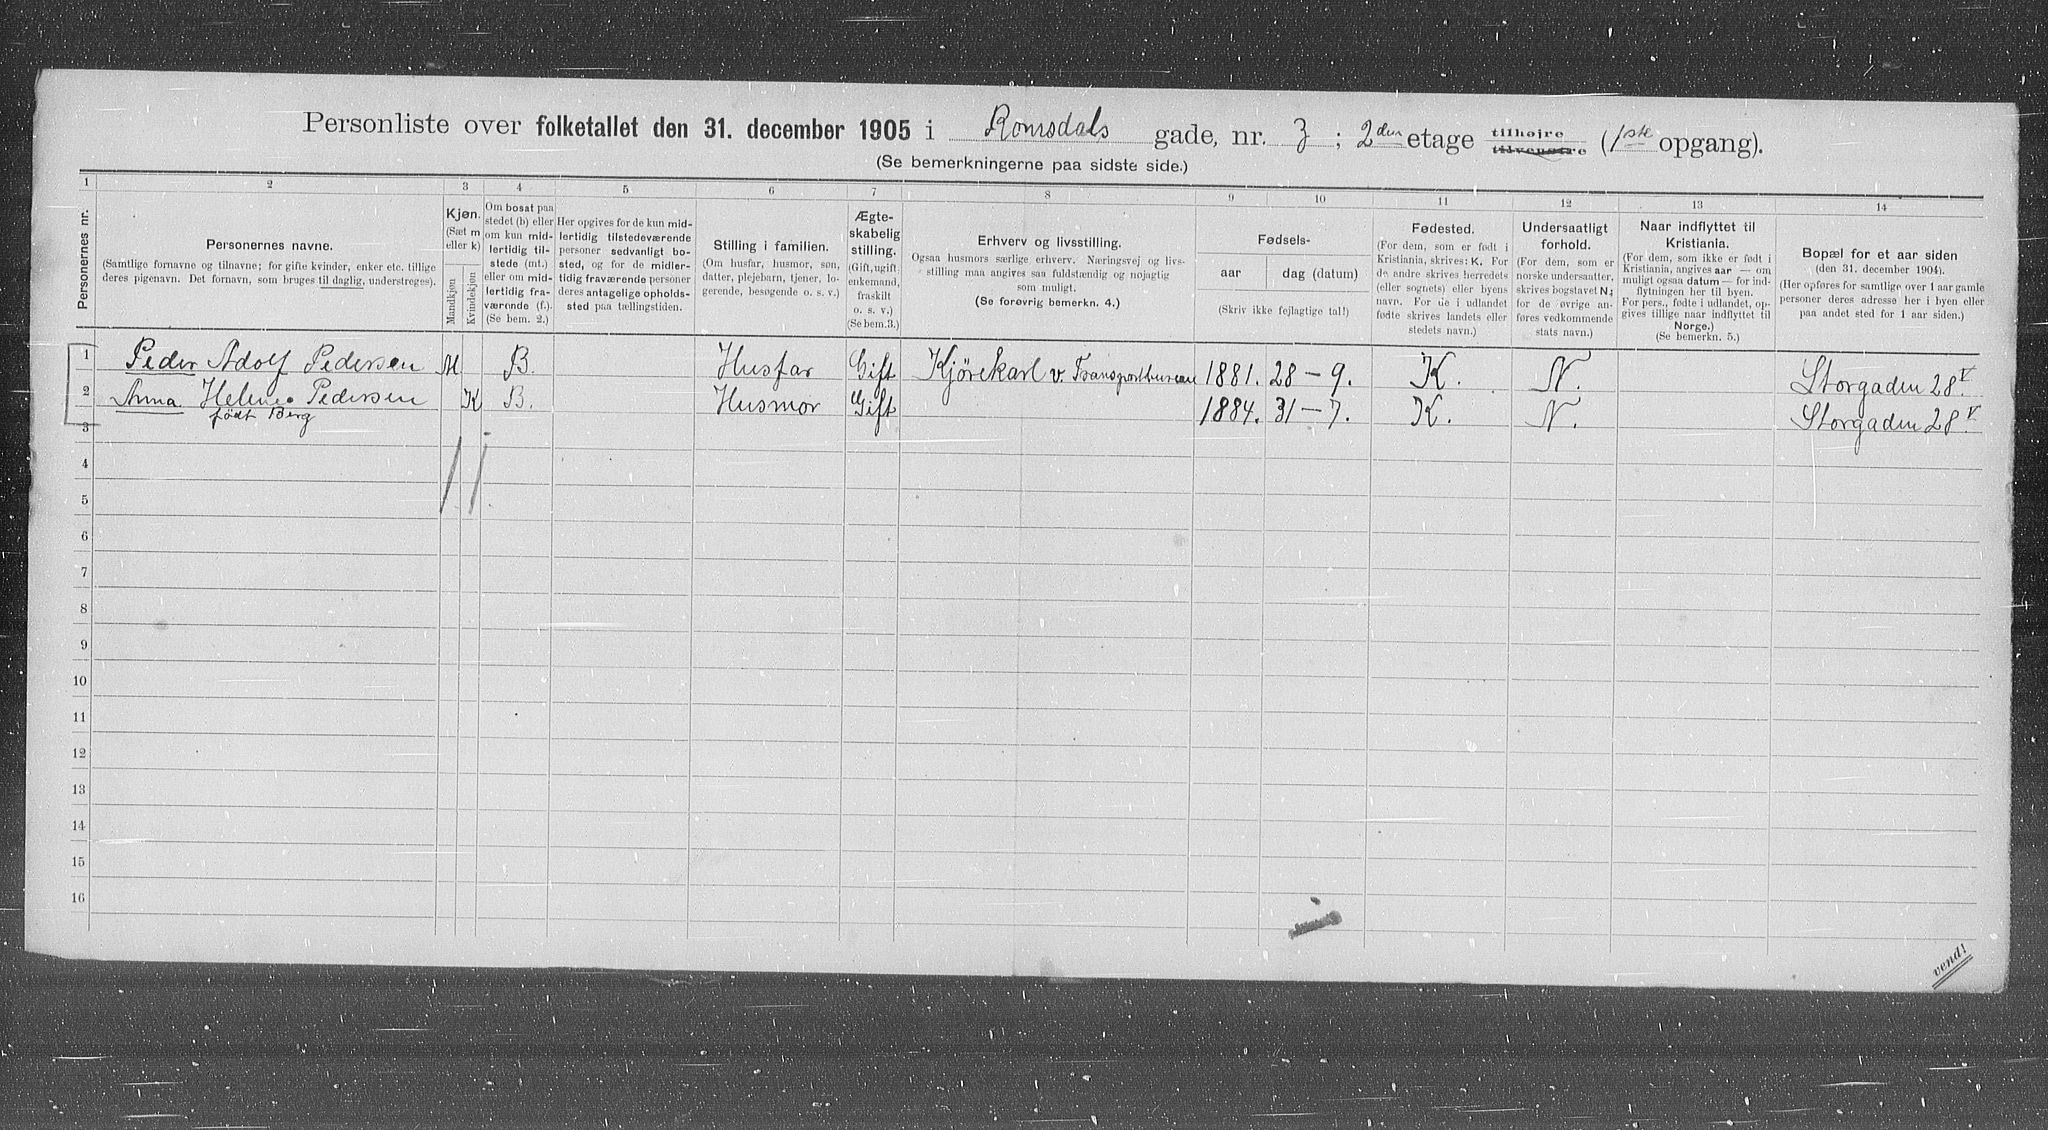 Personliste over folketallet den 31. december 1905 i Romsdals gade, nr. 3 ; 2den etage tilhøjre tilvenstre (1ste opgang).
(Se bemerkningerne paa sidste side.)
1 2 3 4 5 6 7 8 9 10 11 12 13 14
Personernes nr.
Personernes navne.
(Samtlige fornavne og tilnavne; for gifte kvinder, enker etc. tillige
deres pigenavn. Det fornavn, som bruges til daglig, understreges).
Kjøn.
(Sæt m
eller k)
Mandkjøn
Kvindekjøn
Om bosat paa
stedet (b) eller
om kun mid-
lertidig til-
stede (mt.)
eller om mid-
lertidig fra-
værende (f.).
(Se bem. 2.)
Her opgives for de kun mid-
lertidig tilstedeværende
personer sedvanligt bo-
sted, og for de midler-
tidig fraværende personer
deres antagelige opholds-
sted paa tællingstiden.
Stilling i familien.
(Om husfar, husmor, søn,
datter, plejebarn, tjener, lo-
gerende, besøgende o. s. v.)
Ægte-
skabelig
stilling.
(Gift, ugift,
enkemand,
fraskilt
o. s. v.)
(Se bem.3.)
Erhverv og livsstilling.
Ogsaa husmors særlige erhverv. Næringsvej og livs-
stilling maa angives saa fuldstændig og nøjagtig
som muligt.
(Se forøvrig bemerkn. 4.)
Fødsels-
aar
dag (datum)
(Skriv ikke fejlagtige tal!)
Fødested.
(For dem, som er født i
Kristiania, skrives: K. For
de andre skrives herredets
(eller sognets) eller byens
navn. For de i udlandet
fødte skrives landets eller
stedets navn.)
Undersaatligt
forhold.
(For dem, som er
norske undersaatter,
skrives bogstavet N;
for de øvrige an-
føres vedkommende
stats navn.)
Naar indflyttet til
Kristiania.
(For dem, som ikke er født i
Kristiania, angives aar — om
muligt ogsaa datum — for ind-
flytningen her til byen.
For pers., fødte i udlandet, op-
gives tillige naar indflyttet til
Norge.)
(Se bemerkn. 5.)
Bopæl for et aar siden
(den 31. december 1904).
(Her opføres for samtlige over 1 aar gamle
personer deres adresse her i byen eller
paa andet sted for 1 aar siden.)
1 Peder Adolf Pedersen M B. Husfar Gift Kjørekarl v. Transportbureau 1881. 28-9. K. N. Storgaden 28 V.
2 Anna Helene Pedersen K B. Husmor Gift 1884. 31-7. K. N. Storgaden 28 V.
født Berg
3
4
5
6
7
8
9
10
11
12
13
14
15
16
vend!